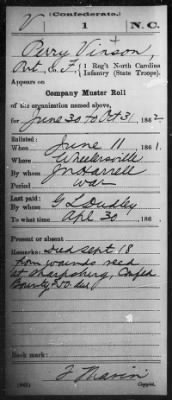 (Confederate.)
V 1 N.C.
Perry Vinson
Pvt, Co. F, 1 Reg't North Carolina
Infantry (State Troops).
Appears on
Company Muster Roll
of the organization named above,
for June 30 to Oct 31, 1862
Enlisted:
When June 11, 1861.
Where Wheelersville
By whom Jn Harrell
Period War
Last paid:
By whom G L Dudley
To what time Apl 30, 186
Present or absent
Remarks: Died Sept 18
from wounds recd
at Sharpsburg, Confed
Bounty $50. due
Book mark:
J Mavin
Copyist.